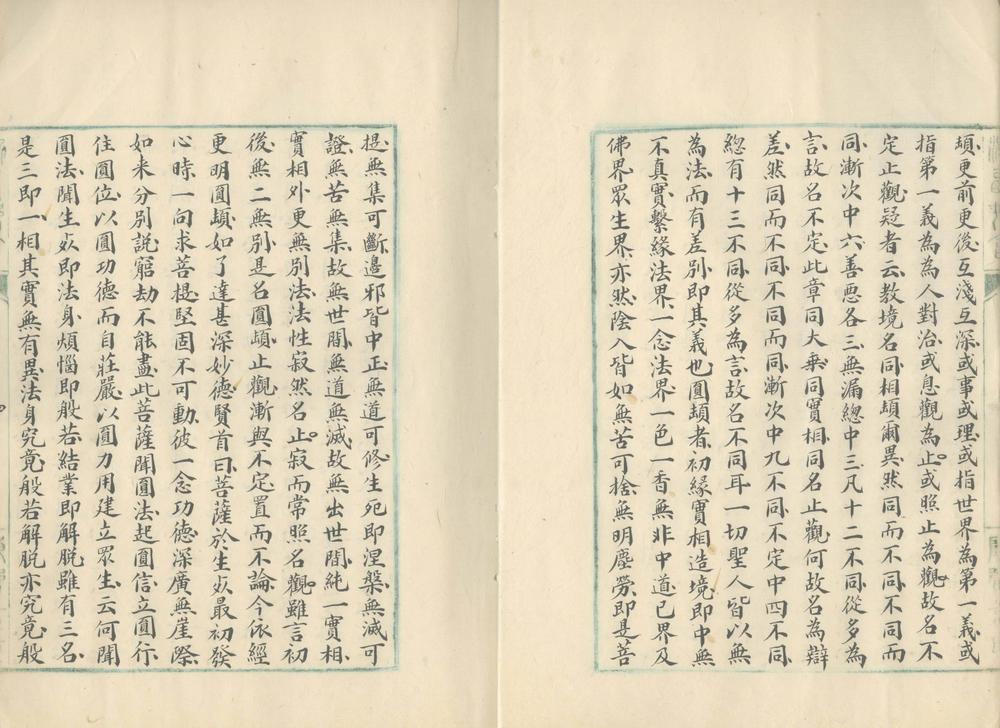 頓更前更後互淺互深或事或理或指世界為第一義或
指第一義為為人對治或息觀為止或照止為觀故名不
定止觀疑者云教境名同相頓爾異然同而不同不同而
同漸次中六善惡各三無漏總中三凡十二不同從多為
言故名不定此章同大乗同實相同名止觀何故名為辯
差然同而不同不同而同漸次中九不同不定中四不同
緫有十三不同從多為言故名不同耳一切聖人皆以無
為法而有差別即其義也圓頓者初緣實相造境即中無
不真實繫緣法界一念法界一色一香無非中道已界及
佛界眾生界亦然陰入皆如無苦可捨無明塵勞即是菩
提無集可斷邊邪皆中正無道可修生死即涅槃無滅可
證無苦無集故無世間無道無滅故無出世間純一實相
實相外更無別法法性寂然名止寂而常照名觀雖言初
後無二無別是名圓頓止觀漸與不定置而不論今依經
更明圓頓如了達甚深妙德賢首曰菩薩於生死最初發
心時一句求菩提堅固不可動彼一念功德深廣無崖際
如来分別說窮劫不能盡此菩薩聞圓法起圓信立圓行
住圓位以圓功德而自莊嚴以圓力用建立眾生云何聞
圓法聞生死即法身煩惱即般若結業即解脫雖有三名
是三即一相其實無有異法身究竟般若解脫亦究竟般